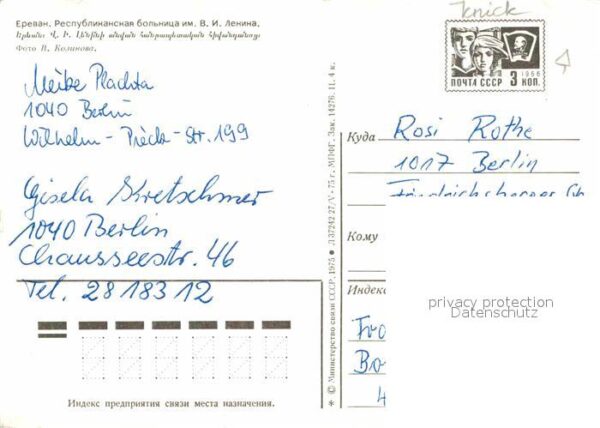 Knick
Ереван. Республиканская больница им. В. И. Ленина.
Երևան: Վ. Ի. Լենինի անվան հանրապետական հիվանդանոց
Фото Н.
ПОЧТА СССР 3 КОП. 1966
Meike Plachta
1040 Berlin
Wilhelm-Pieck-Str. 199
Gisela Kretschmer
1040 Berlin
Chausseestr. 46
Tel. 28 183 12
© Министерство связи СССР, 1975 • Л 37242 27/V-75 г. МПФГ. Зак. 14278. Ц. 4 к.
Куда Rosi Rothe
1017 Berlin
Кому
Индекс
privacy protection
Datenschutz
Индекс предприятия связи места назначения.